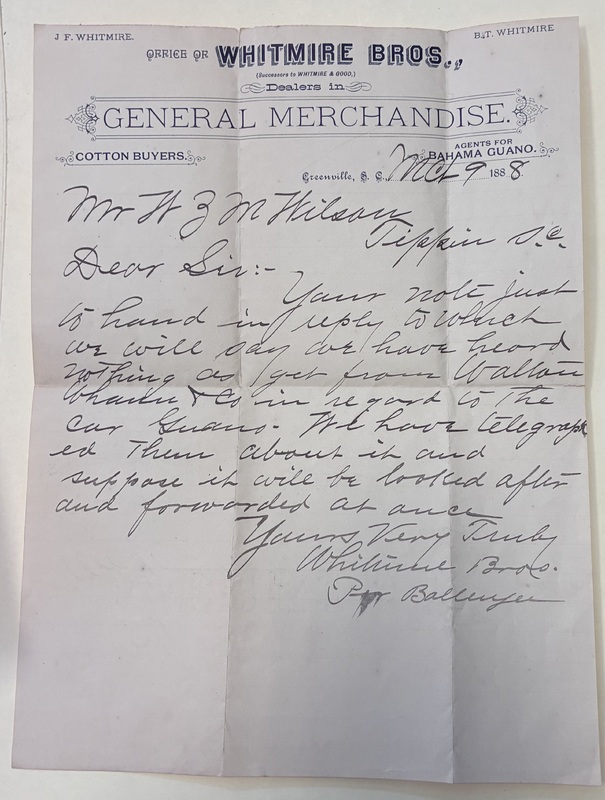 J F. WHITMIRE.
B.T. WHITMIRE
OFFICE OF WHITMIRE BROS.,
(Successors to WHITMIRE & GOOD,)
Dealers in
GENERAL MERCHANDISE.
COTTON BUYERS.
AGENTS FOR
BAHAMA GUANO.
Greenville, S. C., Mch 9 1888
Mr W Z McWilson
Tippin S.C.
Dear Sir:-
Your note just
to hand in reply to which
we will say we have heard
nothing as yet from Walton
& Co in regard to the
car Guano. We have telegraph
ed them about it and
suppose it will be looked after
and forwarded at once
Yours Very Truly
Whitmire Bros.
Per Ballenger